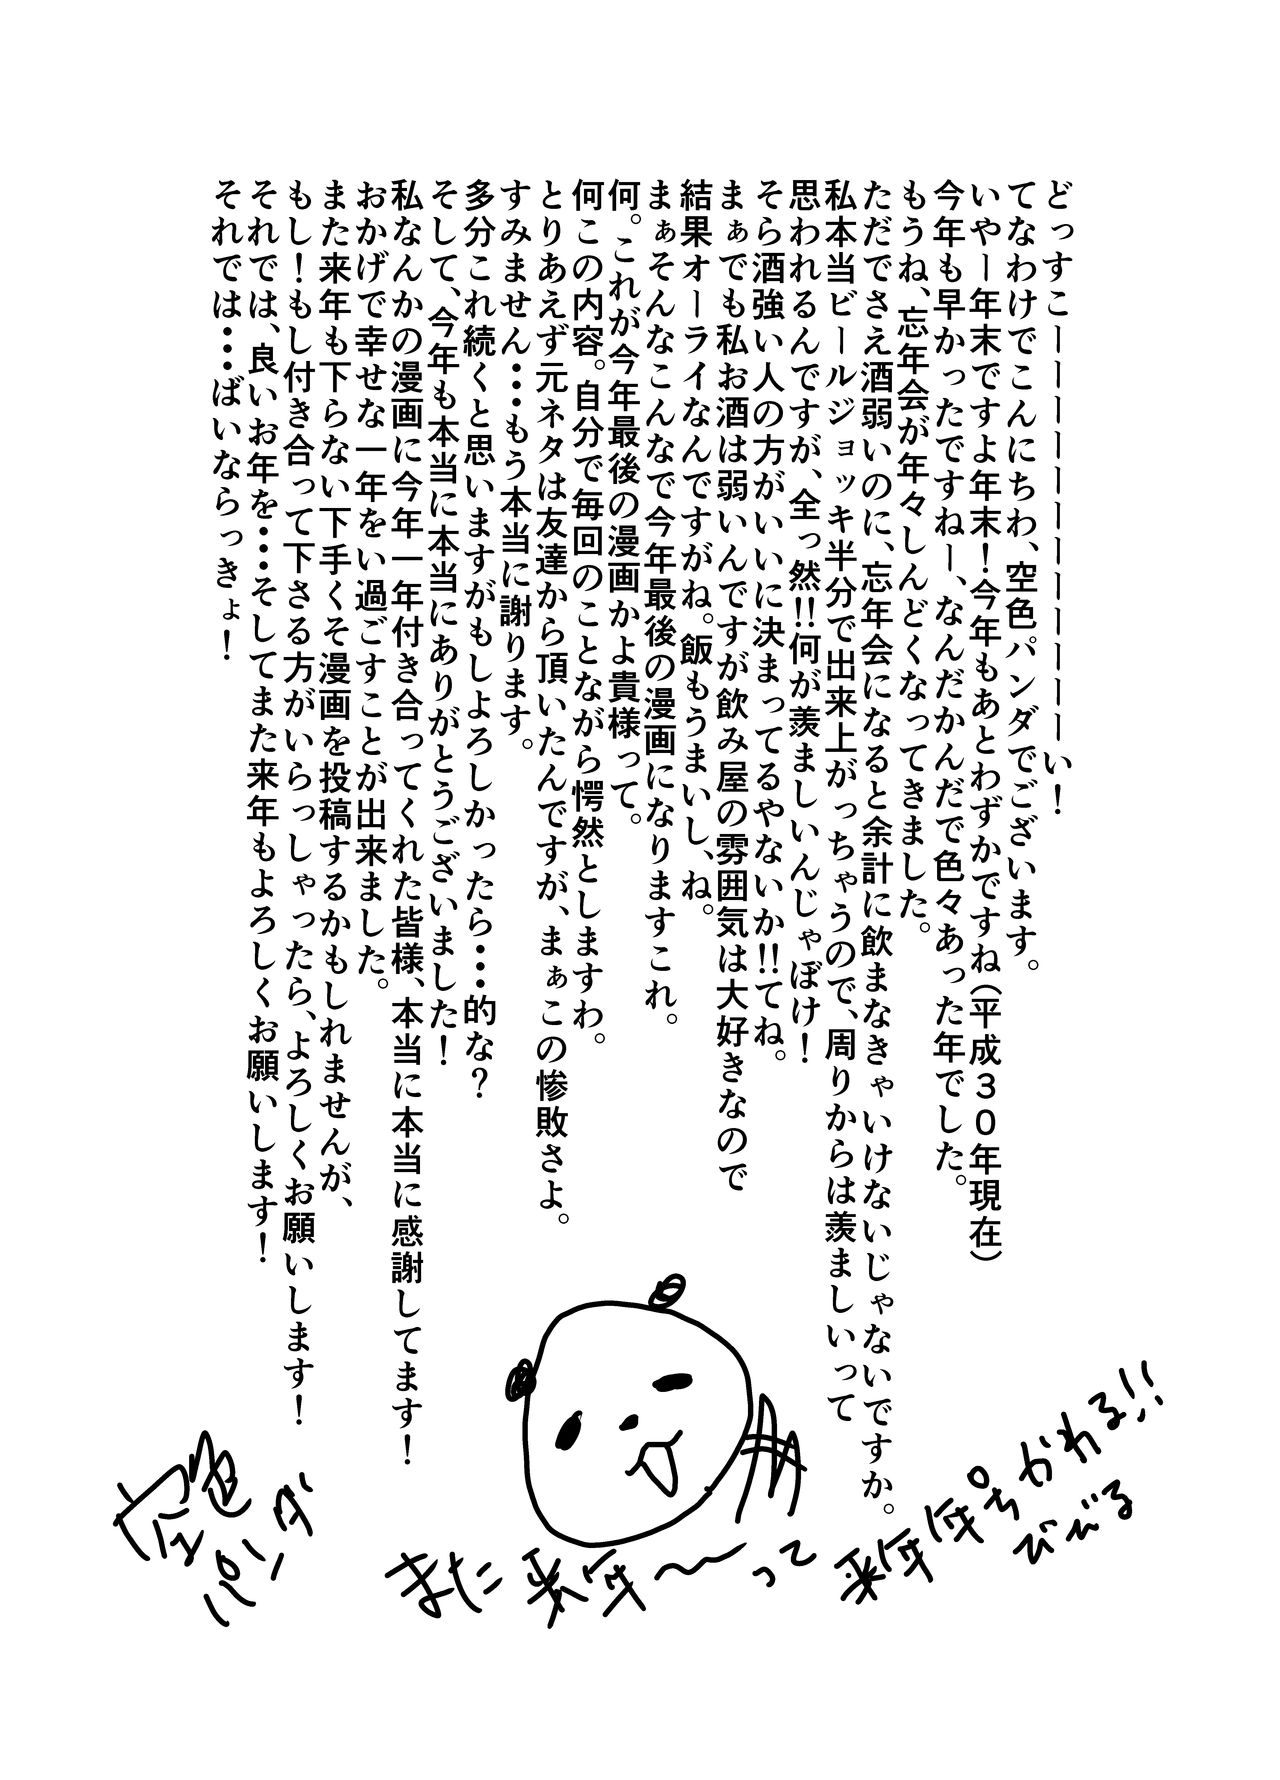 どっすこーーーーーーーーーーーーい！
てなわけでこんにちわ、空色パンダでございます。
いやー年末ですよ年末！今年もあとわずかですね（平成３０年現在）
今年も早かったですねー、なんだかんだで色々あった年でした。
もうね、忘年会が年々しんどくなってきました。
ただでさえ酒弱いのに、忘年会になると余計に飲まなきゃいけないじゃないですか。
私本当ビールジョッキ半分で出来上がっちゃうので、周りからは羨ましいって
思われるんですが、全っ然!!何が羨ましいんじゃぼけ！
そら酒強い人の方がいいに決まってるやないか!!てね。
まぁでも私お酒は弱いんですが飲み屋の雰囲気は大好きなので
結果オーライなんですがね。飯もうまいし、ね。
まぁそんなこんなで今年最後の漫画になりますこれ。
何。これが今年最後の漫画かよ貴様って。
何この内容。自分で毎回のことながら愕然としますわ。
とりあえず元ネタは友達から頂いたんですが、まぁこの惨敗さよ。
すみません…もう本当に謝ります。
多分これ続くと思いますがもしよろしかったら…的な？
そして、今年も本当に本当にありがとうございました！
私なんかの漫画に今年一年付き合ってくれた皆様、本当に本当に感謝してます！
おかげで幸せな一年をい過ごすことが出来ました。
また来年も下らない下手くそ漫画を投稿するかもしれませんが、
もし！もし付き合って下さる方がいらっしゃったら、よろしくお願いします！
それでは、良いお年を…そしてまた来年もよろしくお願いします！
それでは…ばいならっきょ！
また来年〜って
来年年号かわる!!
びびる
空色
パンダ